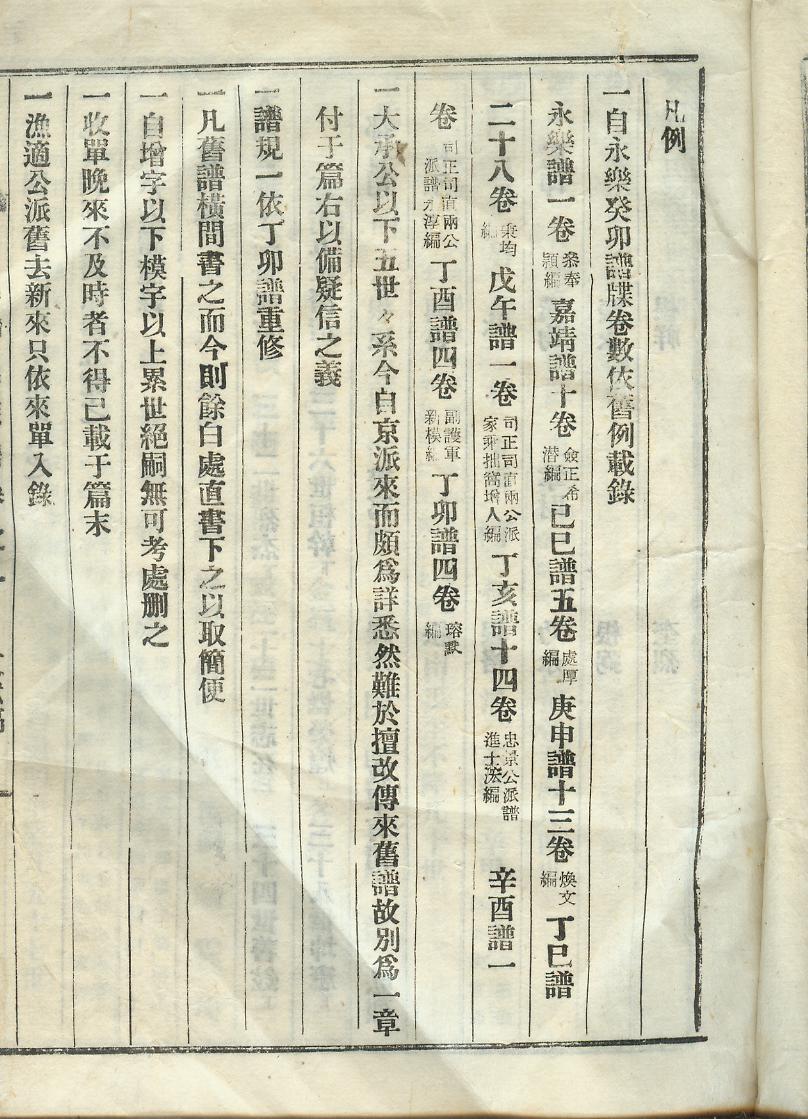 凡例
一自永樂癸卯譜牒卷數依舊例載錄
永樂譜一卷 叅奉穎編 嘉靖譜十卷 僉正希潜編 己巳譜五卷 處厚編 庚申譜十三卷 煥文編 丁巳譜
二十八卷 秉均編 戊午譜一卷 司正司直兩公派家乘拙窩增人編 丁亥譜十四卷 忠景公派譜進士編 辛酉譜一
卷 司正司直兩公派譜永淳編 丁酉譜四卷 副護軍新模編 丁卯譜四卷 瑢默編
一大承公以下五世々系今自京派來而頗爲詳悉然難於擅改傳來舊譜故別爲一章
付于篇右以備疑信之義
一譜規一依丁卯譜重修
一凡舊譜橫間書之而今則餘白處直書下之以取簡便
一自增字以下模字以上累世絕嗣無可考處删之
一收單晩來不及時者不得已載于篇末
一漁適公派舊去新來只依來單入錄